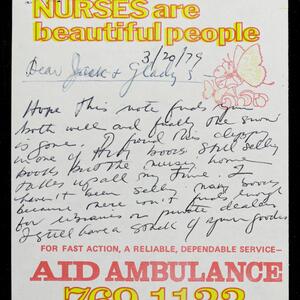 NURSES are
beautiful people
3/20/79
Dear Jack & Gladys –
Hope this note finds you
both well and finally the snow
is gone. I found this
in one of books. Still selling
books but the nursing home
takes up all my time. I
haven't been selling many books
because there isn't funds enough
for libraries or private dealers
I still have a stock of your goodies
FOR FAST ACTION, A RELIABLE, DEPENDABLE SERVICE—
AID AMBULANCE
769-1122